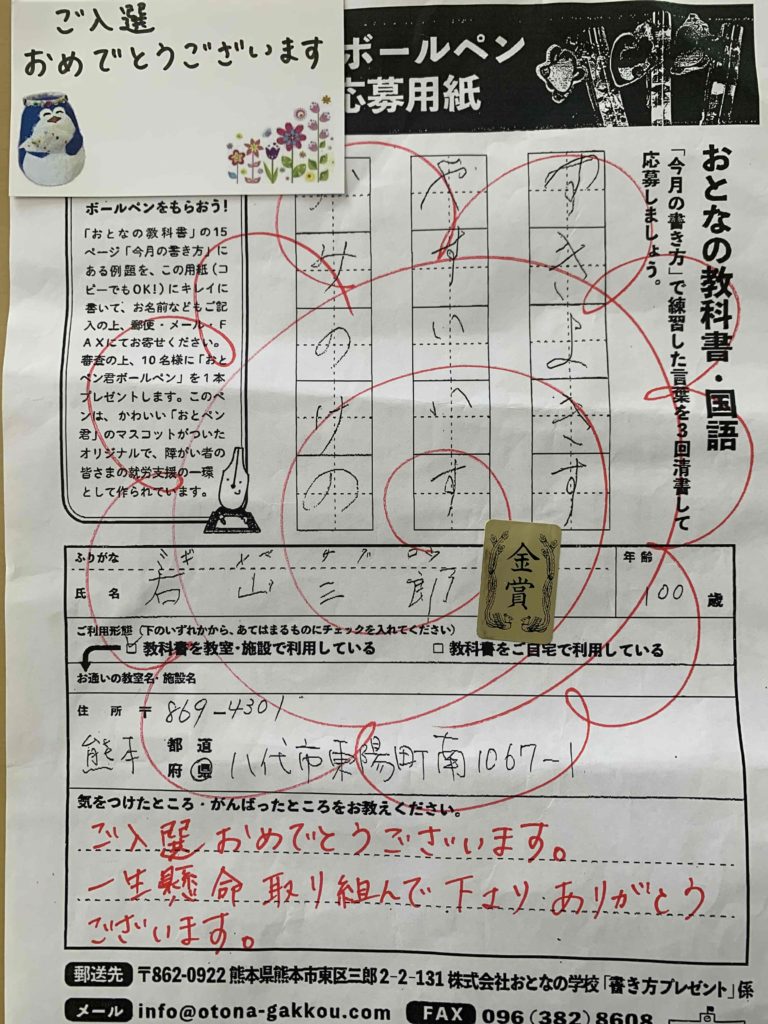 ご入選
おめでとうございます
ボールペン
応募用紙
おとなの教科書・国語
「今月の書き方」で練習した言葉を3回清書して
応募しましょう。
ボールペンをもらおう!
「おとなの教科書」の15
ページ「今月の書き方」に
ある例題を、この用紙(コ
ピーでもOK!)にキレイに
書いて、お名前などもご記
入の上、郵便・メール・F
AXにてお寄せください。
審査の上、10名様に「おと
ペン君ボールペン」を1本
プレゼントします。このペ
ンは、かわいい「おとペン
君」のマスコットがついた
オリジナルで、障がい者の
皆さまの就労支援の一環
として作られています。
ふりがな
氏名 山 三 郎
金賞
年齢 100 歳
ご利用形態(下のいずれかから、あてはまるものにチェックを入れてください)
□ 教科書を教室・施設で利用している □ 教科書をご自宅で利用している
お通いの教室名・施設名
住所 〒 869-4301
熊本 都道府県 八代市東陽町南1067-1
気をつけたところ・がんばったところをお教えください。
ご入選おめでとうございます。
一生懸命取り組んで下さり ありがとう
ございます。
郵送先 〒862-0922 熊本県熊本市東区三郎2-2-131 株式会社おとなの学校「書き方プレゼント」係
メール info@otona-gakkou.com FAX 096(382)8608